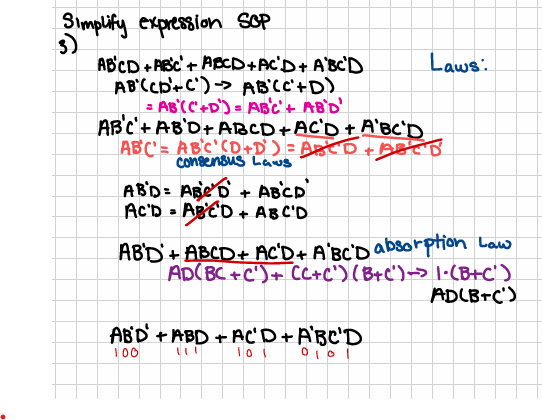 Simplify expression SOP
3)
AB'CD + AB'C' + ABCD + AC'D + A'BC'D
Laws:
AB'(CD'+C') → AB'(C'+D)
= AB'(C'+D') = AB'C' + AB'D'
AB'C' + AB'D + ABCD + AC'D + A'BC'D
AB'C' = AB'C'(D+D') = AB'C'D + AB'C'D'
consensus Laws
AB'D = AB'C'D' + AB'CD'
AC'D = AB'C'D + ABC'D
AB'D' + ABCD + AC'D + A'BC'D absorption Law
AD(BC+C') + (C+C')(B+C') → 1·(B+C')
AD(B+C')
AB'D' + ABD + AC'D + A'BC'D
100 111 101 0101